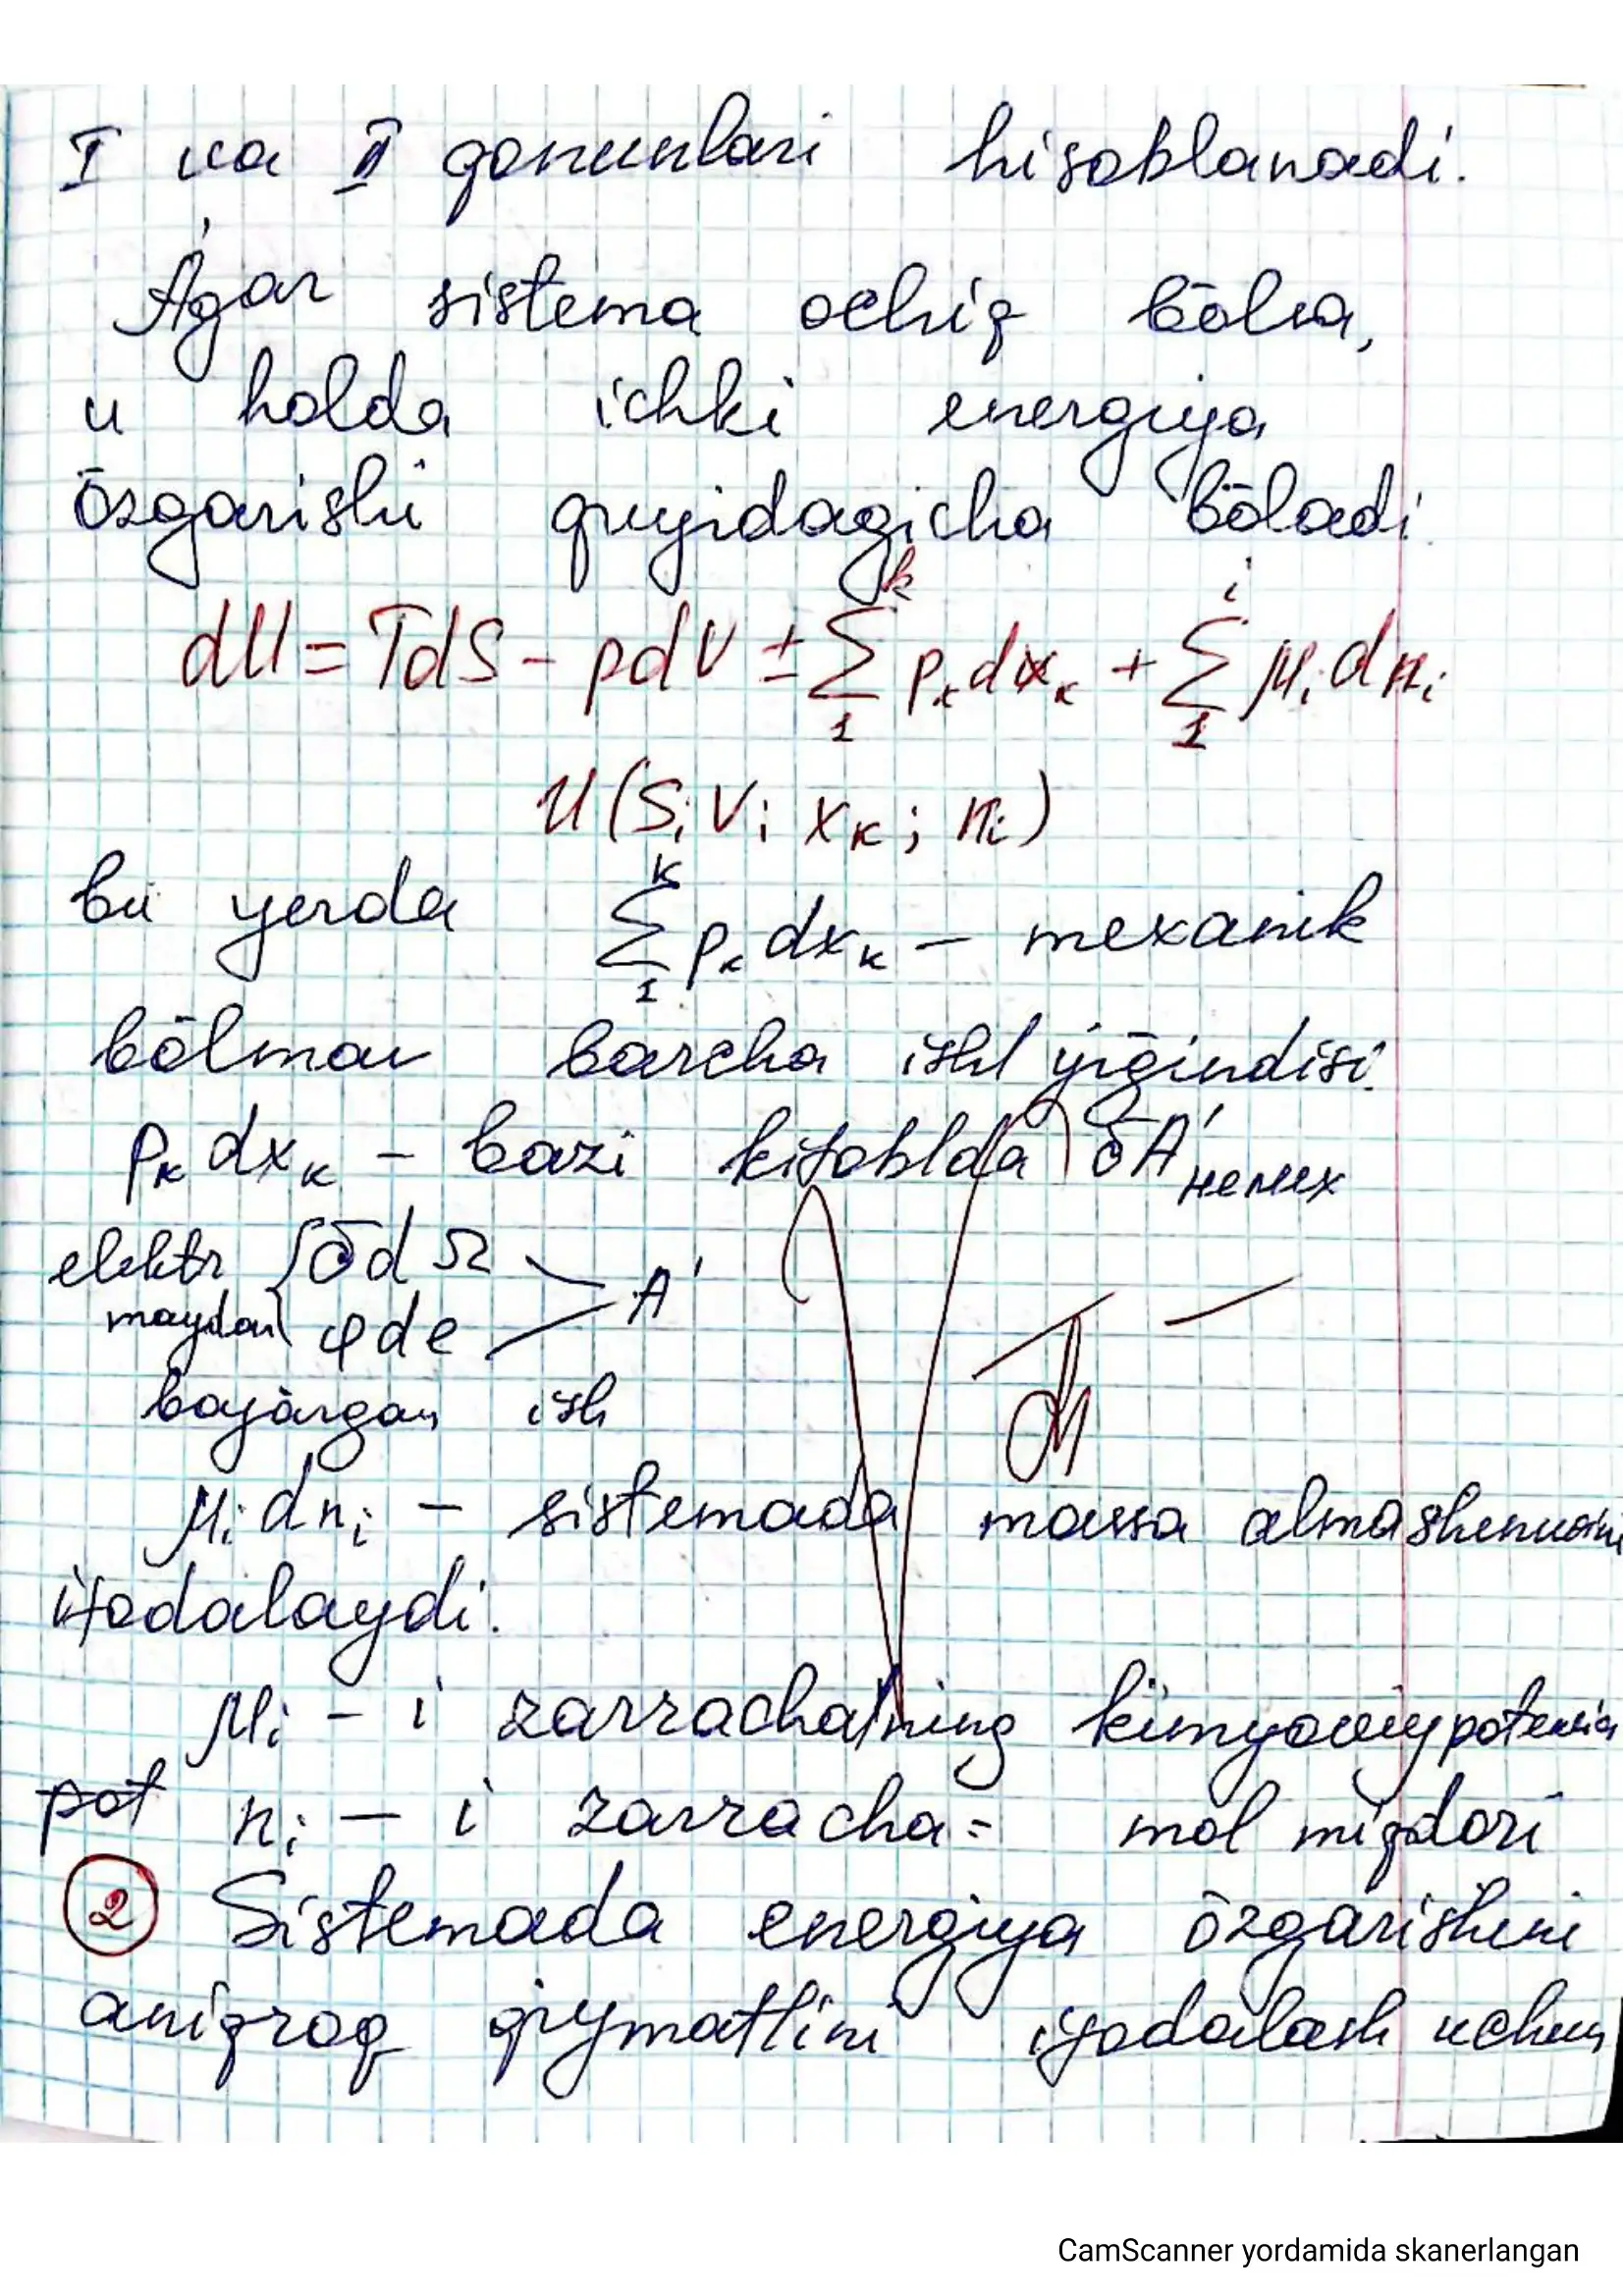 I va II qonunlari hisoblanadi.
Agar sistema ochiq bōlsa,
u holda ichki energiya
ōzgarishi quyidagicha bōladi
dU = TdS - pdV ± Σ₁ᵏ pₖdxₖ + Σ₁ⁱ μᵢdnᵢ
U(S; V; xₖ; nᵢ)
bu yerda Σ₁ᴷ pₖdxₖ — mexanik
bōlman barcha ishl yiḡindisi.
pₖdxₖ - bazi kitoblda δA'немех
elektr { σdΩ > A'
maydon φde
bajargan ish
μᵢdnᵢ - sistemada massa almashenuvini
ifodalaydi.
μᵢ - i zarrachalning kimyoviy potensia
pot nᵢ — i zarracha= mol miqdori
2 Sistemada energiya ōzgarishini
aniqroq qiymatlini ifodalash uchun
CamScanner yordamida skanerlangan